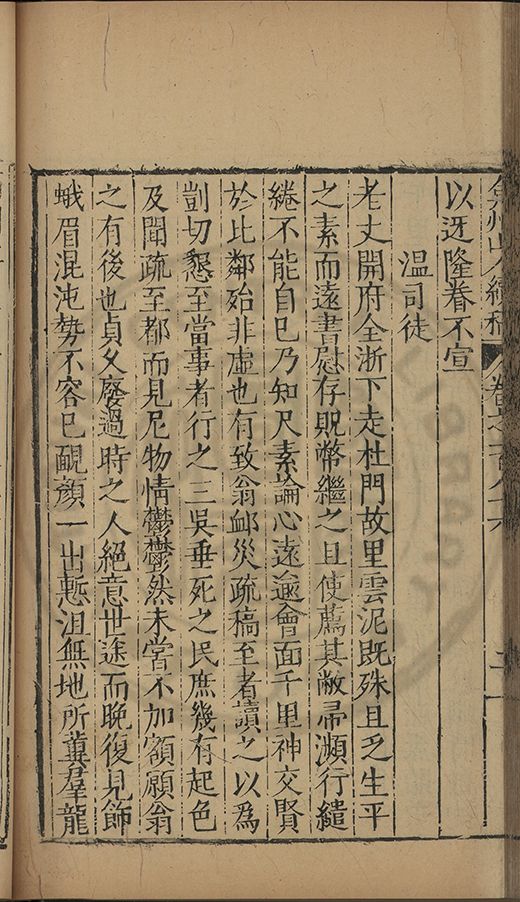 弇州山人續稿 卷之一百八十六
以迓隆眷不宣
温司徒
老丈開府全浙下走杜門故里雲泥既殊且乏生平
之素而遠書慰存貺幣繼之且使薦其敝帚瀕行繾
綣不能自已乃知尺素論心遠逾會面千里神交賢
於比鄰殆非虛也有致翁䘏災疏稿至者讀之以爲
剴切懇至當事者行之三吳垂死之民庶幾有起色
及聞疏至都而見尼物情鬱鬱然未嘗不加額願翁
之有後也貞父廢過時之人絕意世途而晚復見飾
蛾眉混沌勢不容已靦顔一出慙沮無地所冀羣龍